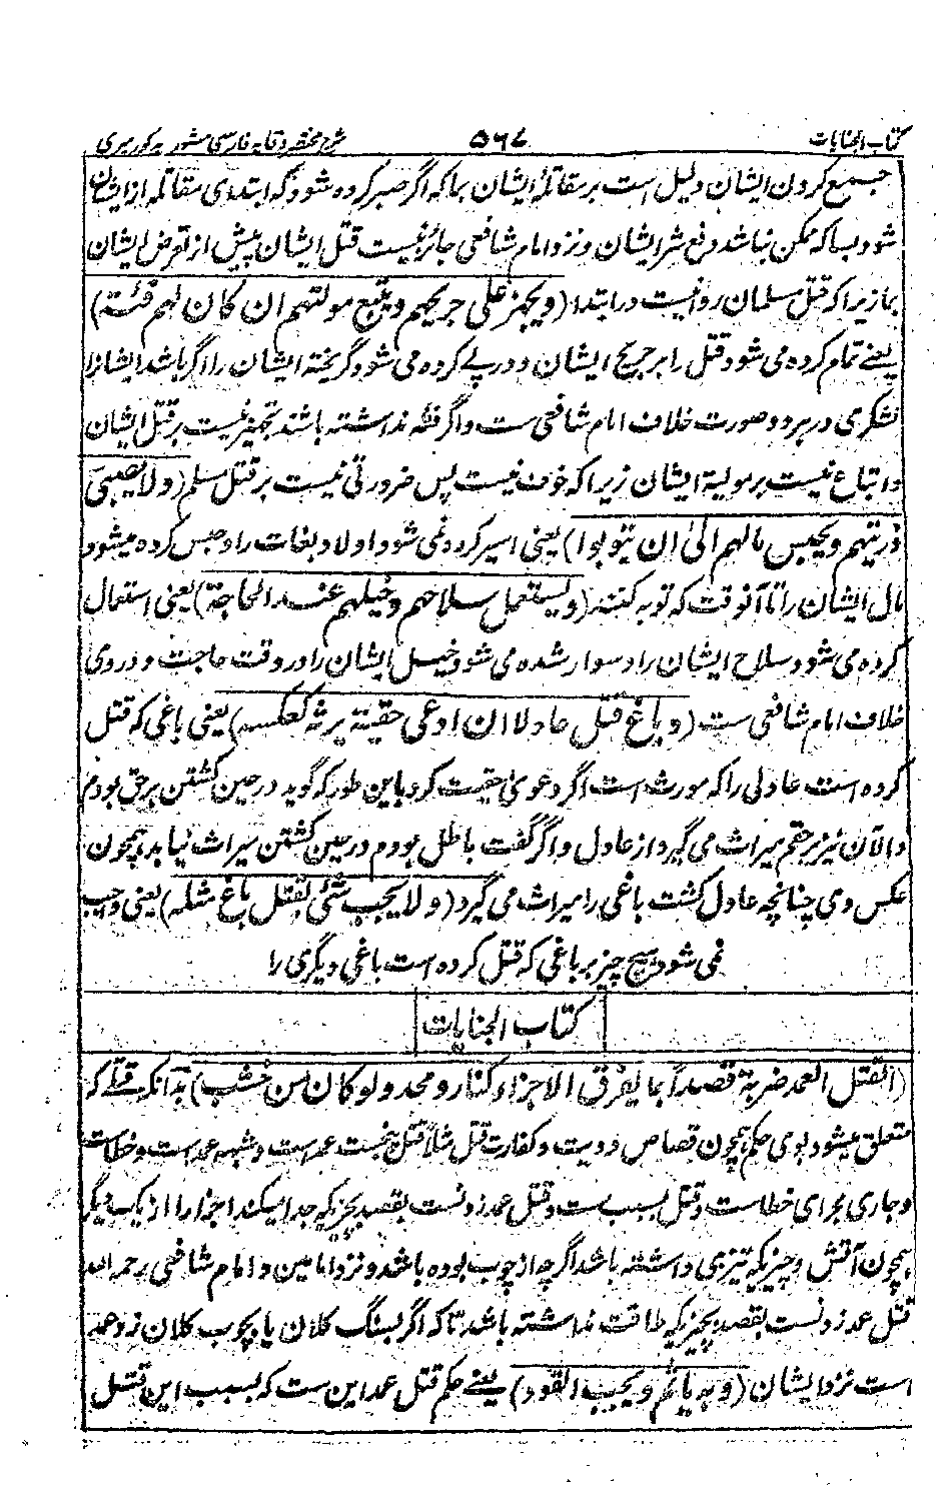 کتاب الجنایات ۵۶۷ شرح مختصر وقایه فارسی مشهور به کور میری
جمع کردن ایشان دلیل است بر مقاتلۂ ایشان بما که اگر صبر کرده شود که ابتدای مقاتله از ایشان
شود بسا که ممکن نباشد دفع شر ایشان و نزد امام شافعی جائز نیست قتل ایشان پیش از تعرض ایشان
بما زیرا که قتل مسلمان روا نیست در ابتدا (و یجهز علی جریحهم و یتبع مولتهم ان کان لهم فئة)
یعنے تمام کرده می شود قتل را بر جریح ایشان و در پے کرده می شود گریخته ایشان را اگر باشد ایشانرا
لشکری در هر دو صورت خلاف امام شافعی ست و اگر فئة نداشته باشند تجهیز نیست بر قتل ایشان
و اتباع نیست بر مولیة ایشان زیرا که خوف نیست پس ضرورتی نیست بر قتل مسلم (و لا یسبی
ذریتهم و یحبس مالهم الی ان یتوبوا) یعنی اسیر کرده نمی شود اولاد بغات را و حبس کرده میشود
مال ایشان را تا آنوقت که توبه کنند (و یستعمل سلاحهم و خیلهم عند الحاجة) یعنی استعمال
کرده می شود سلاح ایشان را و سوار شده می شود خیل ایشان را در وقت حاجت و در وی
خلاف امام شافعی ست (و باغ قتل عادلا ان ادعی حقیته یرثه کعکسه) یعنی باغی که قتل
کرده است عادلی را که مورث است اگر دعوی حقیت کرد باین طور که گوید در حین کشتن بر حق بودم
و الآن نیز بر حقم میراث می گیرد از عادل و اگر گفت باطل بودم در حین کشتن میراث نیابد همچون
عکس وی چنانچه عادل کشت باغی را میراث می گیرد (و لا یجب شئ بقتل باغ مثله) یعنی واجب
نمی شود هیچ چیز بر باغی که قتل کرده است باغی دیگری را
کتاب الجنایات
(القتل العمد ضربه قصداً بما یفرق الاجزاء کنار و محدد و لو کان من خشب) بدانکه قتلے که
متعلق میشود بوی حکم همچون قصاص و دیت و کفارت قتل مثلاً پنج ست عمدست و شبه عمدست و خطاست
و جاری مجرای خطاست و قتل بسبب ست و قتل عمد زدنست بقصد بچیزیکه جدا میکند اجزا را از یکدیگر
همچون آتش و چیزیکه تیزی داشته باشد اگرچه از چوب بوده باشد و نزد امامین و امام شافعی رحمهم الله
قتل عمد زدنست بقصد بچیزیکه طاقت نداشته باشد تا که اگر بسنگ کلان یا بچوب کلان زد عمد
است نزد ایشان (و به یاثم و یجب القود) یعنے حکم قتل عمد این ست که بسبب این قتل